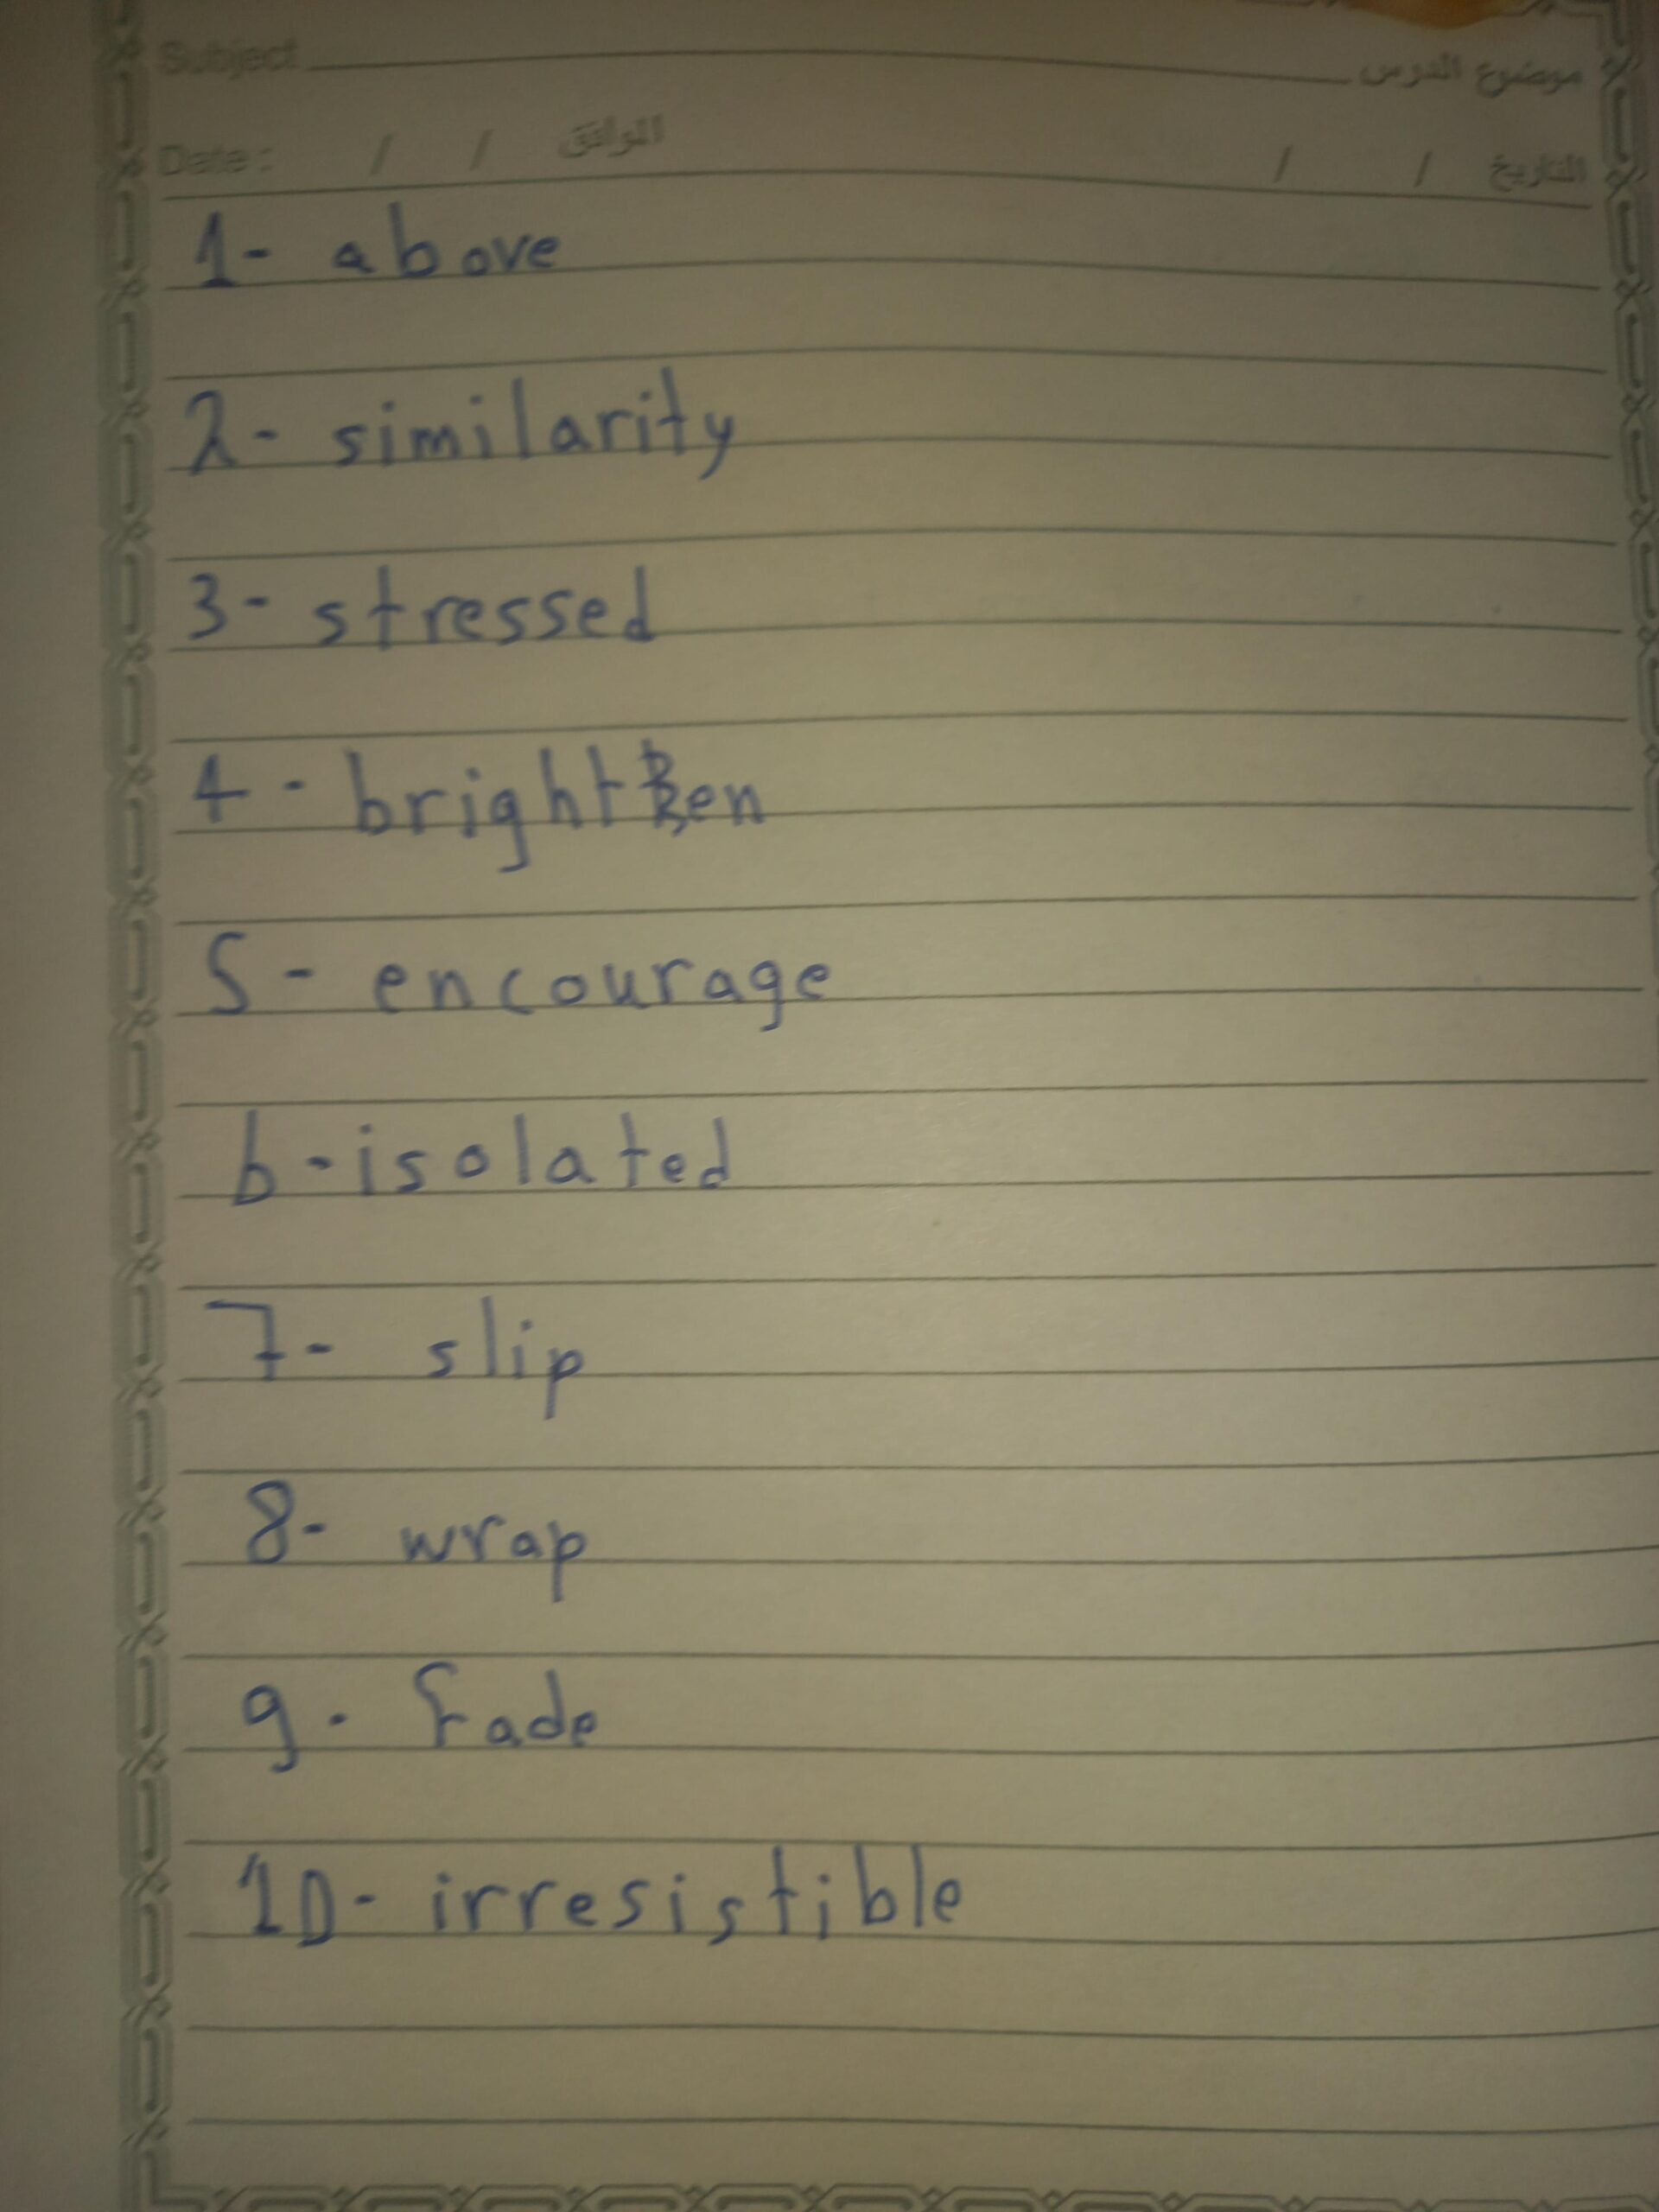 Subject موضوع الدرس
Date : / / الموافق / / التاريخ
1- above
2- similarity
3- stressed
4- brighten
5- encourage
6- isolated
7- slip
8- wrap
9- fade
10- irresistible